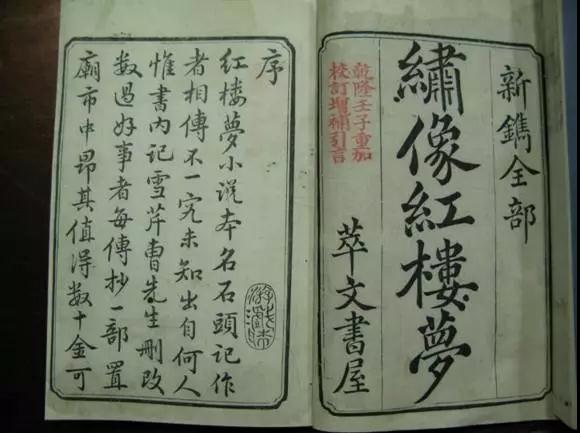 新鐫全部
繡像紅樓夢
萃文書屋
乾隆壬子重加
校訂增補引言
序
紅楼夢小说本名石頭記作
者相傳不一究未知出自何人
惟書内記雪芹曹先生刪改
数過好事者每傳抄一部置
廟市中昂其值得数十金可